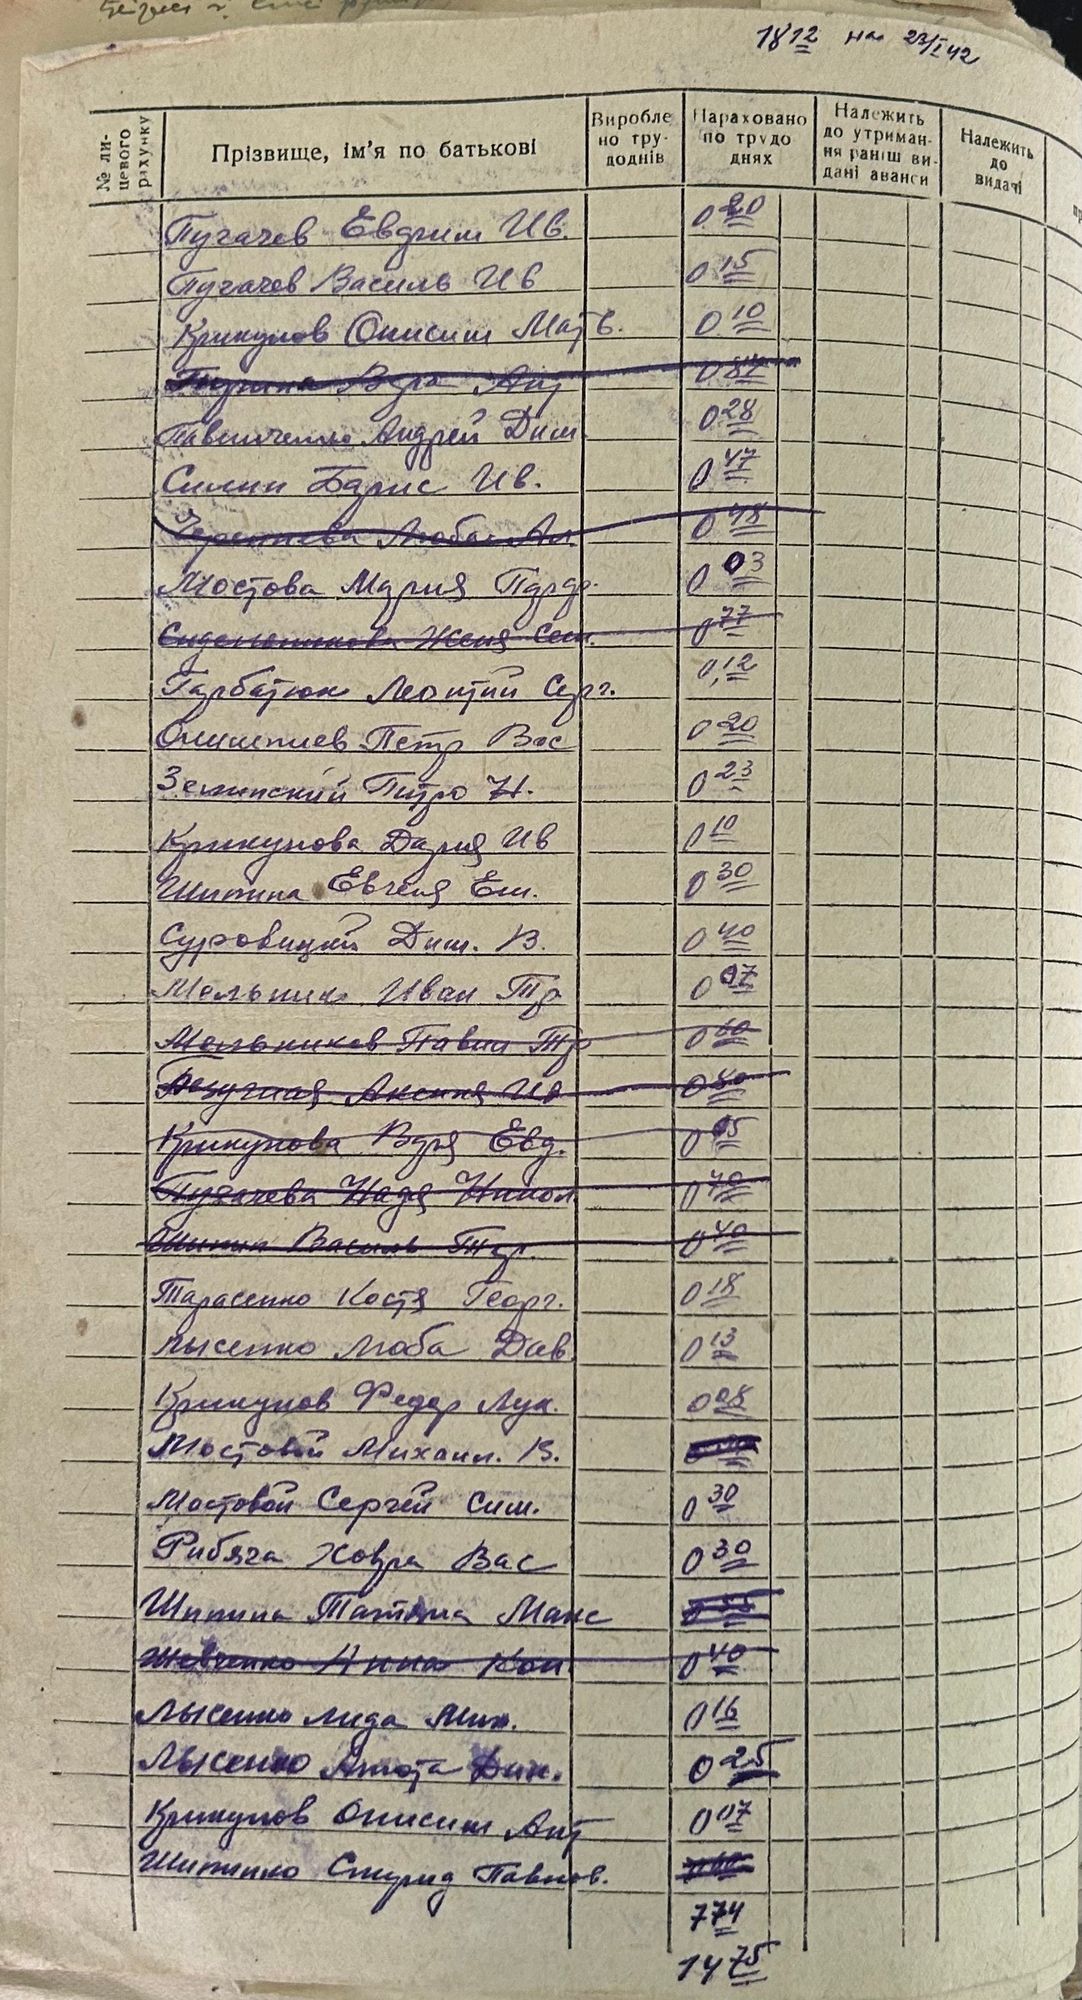 18 12 на 23/I 42
№ лицевого рахунку
Прізвище, ім'я по батькові
Виробле но трудоднів
Нараховано по трудо днях
Належить до утримання раніш видані аванси
Належить до видачі
Пугачев Евдоким Ив. 0 20
Пугачев Василь Ив 0 15
Крикунов Онисим Матв. 0 10
Вера Ант
Андрей Дим. 0 28
Силин Барис Ив. 0 47
Люба Ал. 0 48
Мостова Мария Педор. 0 03
Женя Сем. 0 77
Гарбатюк Леонтий Серг. 0,12
Петр Вас 0 20
Зелинский Петро И. 0 23
Крикунова Дария Ив 0 10
Шипина Евгения Ем. 0 30
Суровицкий Дим. В. 0 40
Мельник Иван Тр 0 07
Мельников Павел Тр 0 60
Аксиния Ив 0 80
Крикунова Вера Евд. 0 05
Пугачева Надя Никол 0 70
Шипин Василь 0 40
Тарасенко Костя Георг. 0 18
Лысенко Люба Дав. 0 13
Крикунов Федор Лук. 0 08
Мостовой Михаил. В.
Мостовой Сергей Сим. 0 30
Рибяча Ховра Вас 0 30
Шипина Татяна Макс
Шевченко Анна Кон 0 40
Лысенко Лида Мих. 0 16
Лысенко Анюта Дим. 0 25
Крикунов Онисим Ант 0 07
Шипилко Павлов.
7 74
14 75